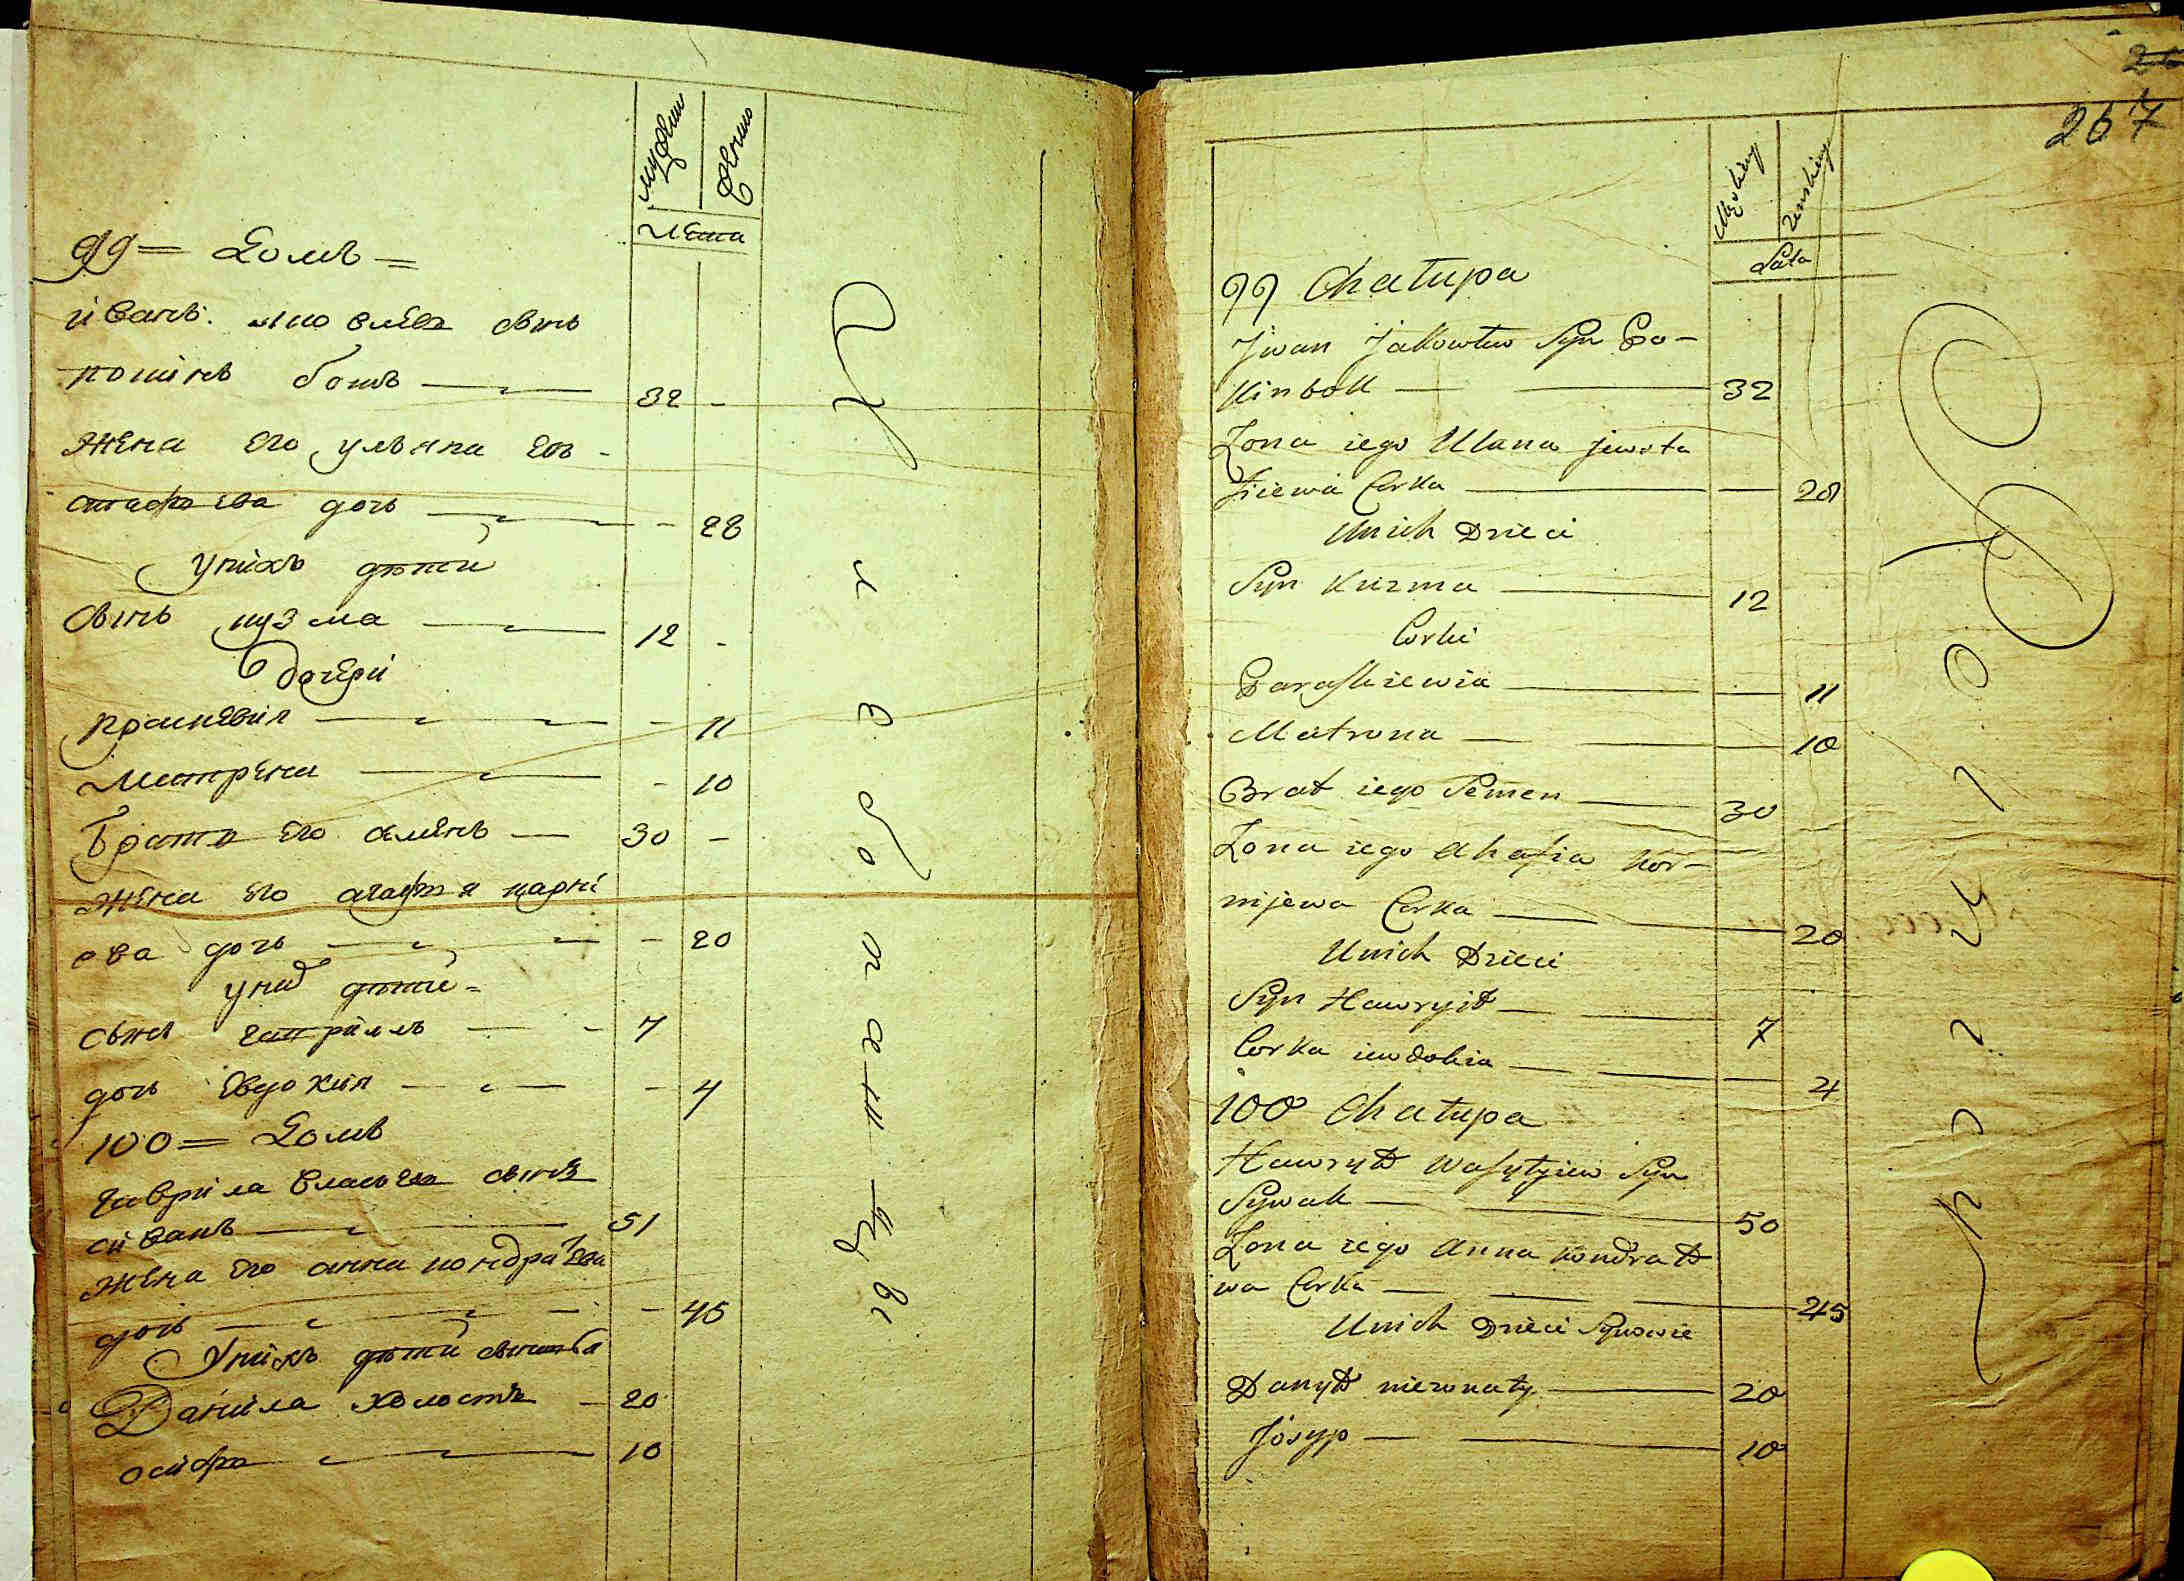 мужеск женско
лета
99 = Домъ =
иванъ яковлевъ сынъ
покинь бокъ — 32 -
жена его ульяна ев-
стафева дочь — - 28
у нихъ дѣтей
сынъ кузма — 12 -
дочери
праскевия — - 11
матрена — - 10
братъ его семенъ — 30 -
жена его агафия карне
ева дочь — - 20
у них дѣтей =
сынъ гаврилъ — - 7
дочь евдокия — - 4
100 = Домъ
гаврила власова сынъ
сиванъ — 51
жена его анна кондратева
дочь — - 45
у нихъ дѣтей сыновя
Данила холостъ - 20
осифъ — 10
267
Męskiey Żenskiey
Lata
99 Chałupa
Jwan Jakowlew Syn Po-
kinbok — 32
Żona iego Ulana jewsta
fiiewa Corka — — 28
Unich Dzieci
Syn Kuzma — 12
Corki
Paraskiewia — — 11
Matrona — — 10
Brat iego Semen — 30
Żona iego Ahafia Kor-
nijewa Corka — 20
Unich Dzieci
Syn Hawryił — 7
Corka iewdokia — — 4
100 Chałupa
Hawryło Wasylyiew Syn
Sywak — 50
Żona iego Anna Kondrato
wa Corka — 45
Unich Dzieci Synowie
Danyło niezonaty — 20
Jósyp — 10